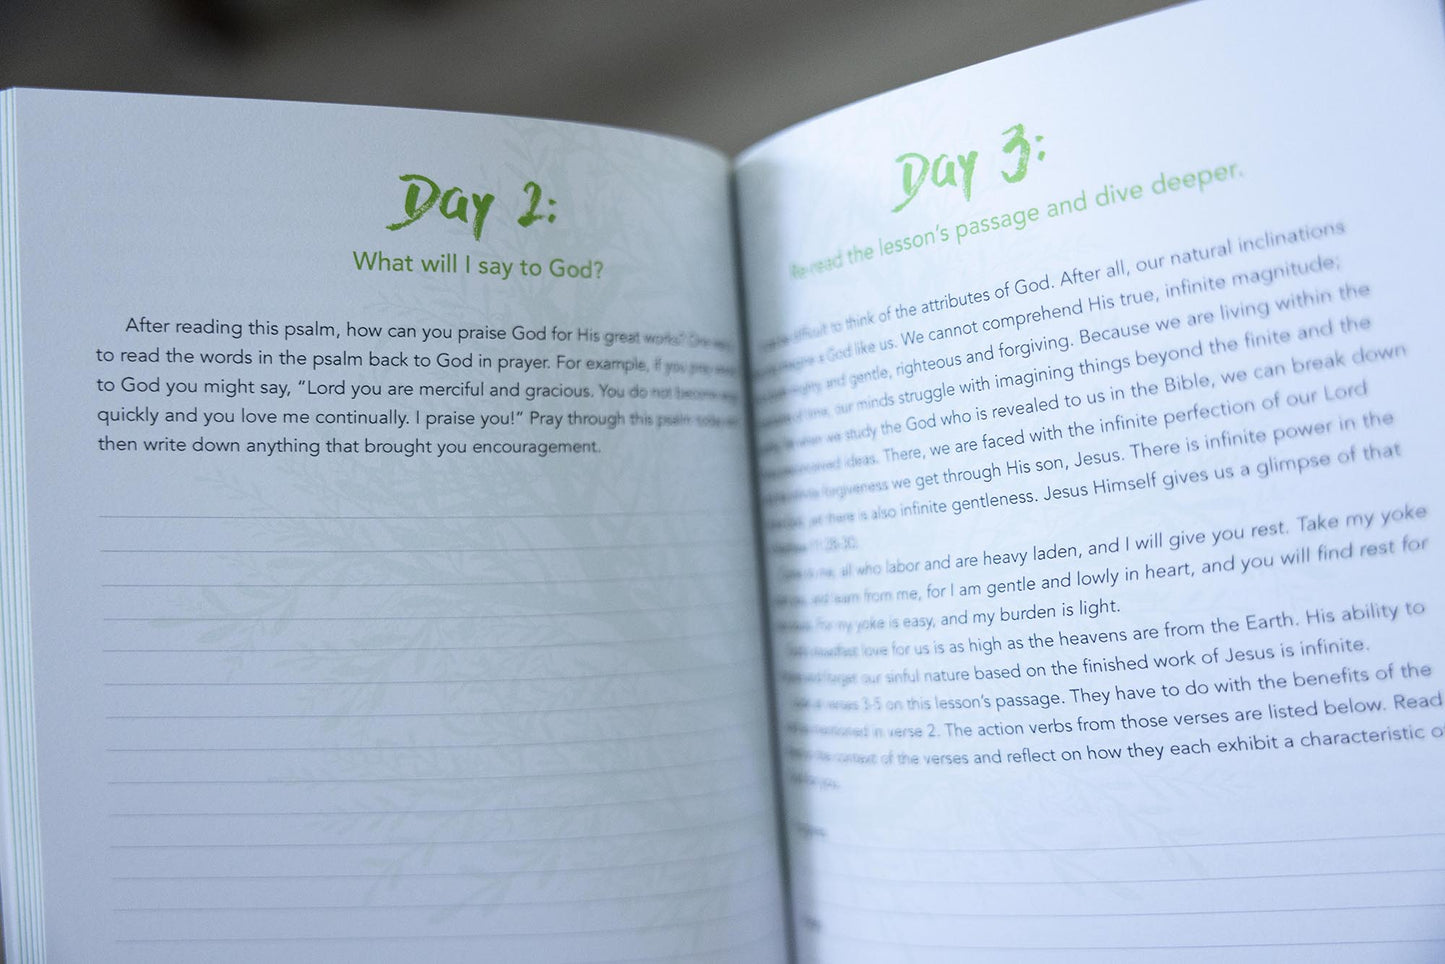 Day 2:
What will I say to God?
After reading this psalm, how can you praise God for His great works? One way
to read the words in the psalm back to God in prayer. For example, if you pray
to God you might say, “Lord you are merciful and gracious. You do not become
quickly and you love me continually. I praise you!” Pray through this psalm
then write down anything that brought you encouragement.
Day 3:
Re-read the lesson’s passage and dive deeper.
difficult to think of the attributes of God. After all, our natural inclinations
a God like us. We cannot comprehend His true, infinite magnitude;
and gentle, righteous and forgiving. Because we are living within the
of time, our minds struggle with imagining things beyond the finite and the
when we study the God who is revealed to us in the Bible, we can break down
ideas. There, we are faced with the infinite perfection of our Lord
forgiveness we get through His son, Jesus. There is infinite power in the
yet there is also infinite gentleness. Jesus Himself gives us a glimpse of that
11:28-30:
to me, all who labor and are heavy laden, and I will give you rest. Take my yoke
and learn from me, for I am gentle and lowly in heart, and you will find rest for
For my yoke is easy, and my burden is light.
steadfast love for us is as high as the heavens are from the Earth. His ability to
forget our sinful nature based on the finished work of Jesus is infinite.
verses 3-5 on this lesson’s passage. They have to do with the benefits of the
mentioned in verse 2. The action verbs from those verses are listed below. Read
the context of the verses and reflect on how they each exhibit a characteristic